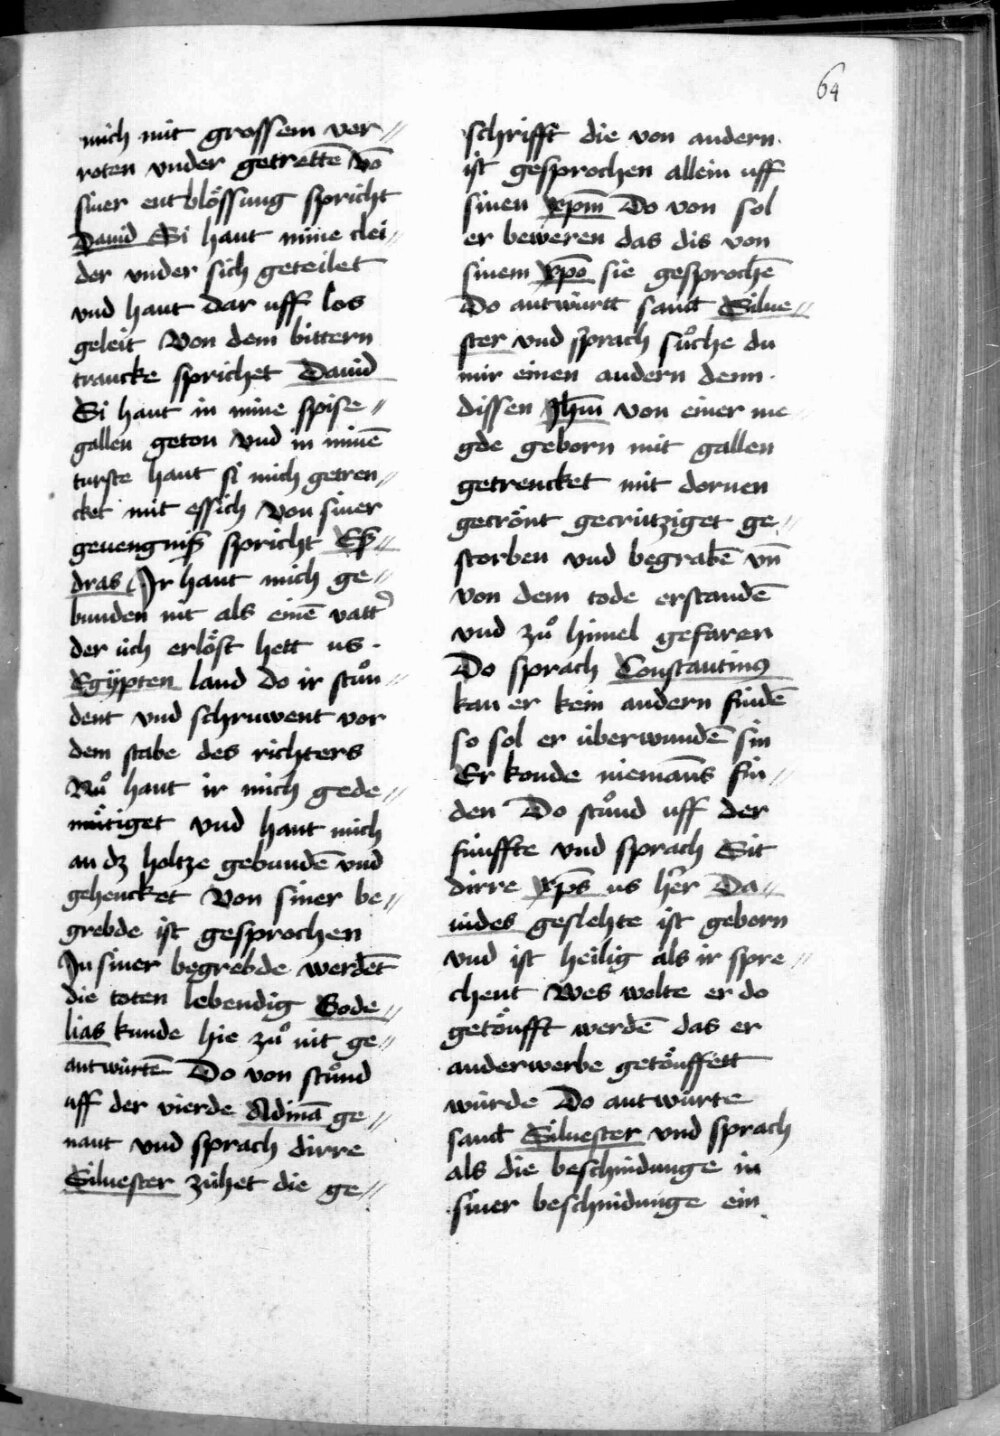 64
mich mit grossem ver//
roten vnder getrettē vō
siner entblössung spricht
Dauid Si hant mine clei/
der vnder sich geteilet
vnd hant dar uff los
geleit Von dem bittern
trancke sprichet Dauid
Si hant in mine spise //
gallen geton vnd in minē
turste hant si mich getren//
cket mit essich Von siner
geuengniß spricht Eß//
dras Ir hant mich ge//
bunden nit als einē vatt'
der úch erlöst hett us .
Egÿpten land do ir stůn/
dent vnd schruwent vor
dem stabe des richters
Nů hant ir mich gede//
mütiget vnd hant mich
an dz holtze gebundē vnd
gehencket Von siner be//
grebde ist gesprochen
In siner begrebde werdēt
die toten lebendig Gode//
lias kunde hie zů nit ge//
antwúrtē Do von stůnd
uff der vierde Adinā ge//
nant vnd sprach dirre
Siluester zühet die ge//
schrifft die von andern.
ist gesprochen allein uff
sinen xpm̄ Do von sol
er beweren das dis von
sinem xpō sie gesprochē
Do antwürtt sanct Silue//
ster vnd sprach sůche du
mir einen andern denn .
dissen Jhm̄ von einer me
gde geborn mit gallen
getrencket mit dornen
gecrönt gecrútziget ge//
storben vnd begrabē vn̄
von dem tode erstandē
vnd zů himel gefaren
Do sprach Constantinus
kan er kein andern findē
so sol er úberwundē sin
Er konde niemans fin//
den Do stůnd uff der
fúnffte vnd sprach Sit
dirre xps̄ us h'er Da//
uides geslehte ist geborn
vnd ist heilig als ir spre//
chent Wes wolte er do
getöufft werdē das er
anderwerbe getöuffett
würde Do antwürte
sanct Siluester vnd sprach
als die beschnidunge in
siner beschnidunge ein